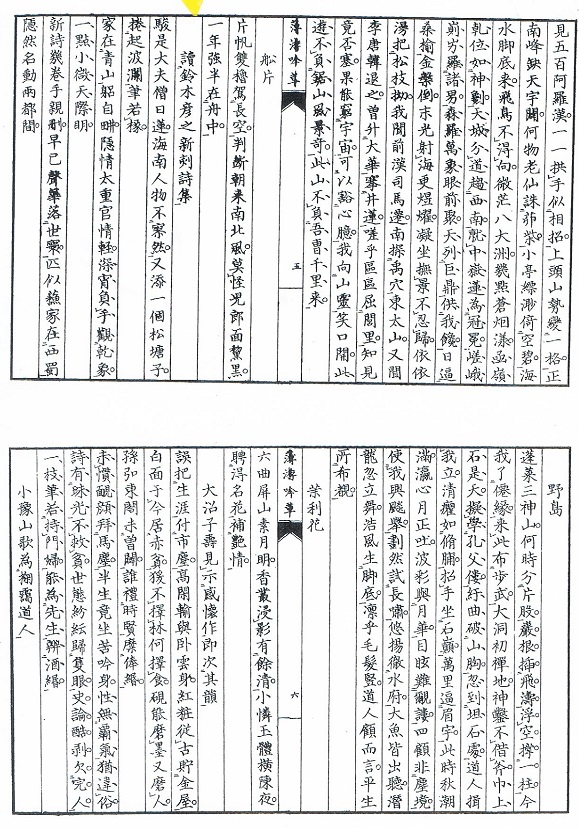 見五百羅漢一一拱手似相招上頭山勢變一格正
南峰缺天宇闊何物老仙誅茆柴小亭縹渺倚空碧海
水脚底來飛鳥不得向微茫八大洲幾點蒼烟漾函嶺
乾位如神劃天城分道趨西南就中嶽蓮為冠冕嵯峨
萴岃羅諸男森羅萬象眼前聚天列巨鼎供我餞日逼
桑揄金樂倒末光射海更煜燿凝坐撫景不忍歸依依
湯把松枝拗我聞前漢司馬遷南探禹穴東太山又聞
李唐韓退之曽升大華搴井蓮嗟乎區區屈閭里知見
竟否塞果能窮宇宙可以豁心臆我向山靈笑口開此
遊不負鋸山風景奇此山不負吾曹千里來
船片
片帆雙櫓駕長空判斷朝來南北風莫怪兄郎面黧黑
一年強半在舟中
讀鈴木彥之新刻詩集
駿是大夫僧日蓮海南人物不寥然又添一個松塘子
捲起波瀾筆若椽
家在青山躬自畊隱情太重官情輕深宵負手觀乾象
一點小微天際明
新詩幾卷手親刪早已聲華落世寰匹似蘓家在西蜀
隱然名動兩都間
薄濤吟草
五
野島
蓬萊三神山何時分片股巖根揷飛濤浮空撐一柱今
我了僊緣來此布步武大洞初禪地神鑿不借斧巾上
石是天擬學孔父僂紆曲破山胸忽到坦石處道人揖
我立清癯如脩脯招手坐石巔萬里逼眉宇此時秋潮
滿瀛心月正吐波彩與月華目眩難觀謢四顧非塵境
使我興颷舉劃然試長嘯悠揚徹水府大魚皆出聽潛
龍忽立舞浩風生脚底凛乎毛髮豎道人顧而言平生
所布覩
茉利花
六曲屏山素月明香叢浸影有餘清小憐玉體橫陳夜
聘得名花補艷情
大沼子壽見示感懷作即次其韻
誤把生涯付市塵高閑輸與卧雲身紅粧從古貯金屋
白面于今居赤貧猨不擇林何擇食硯能磨墨又磨人
孫弘東閤未曽開誰禮時賢縻俸緡
未慣醜顏拜馬塵半生竟坐苦吟身性無霸氣猶違俗
詩有昧光不救貧世態紛紜歸隻眼史論酷剥欠完人
一枝筆若持門婦能為先生辧酒緡
小豫山歌為糊靄道人
薄濤吟草
六